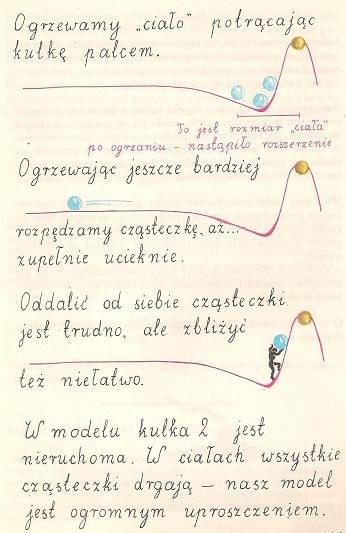 Ogrzewamy „ciało" potrącając
kulkę palcem.
To jest rozmiar „ciała"
po ogrzaniu – nastąpiło rozszerzenie
Ogrzewając jeszcze bardziej
rozpędzamy cząsteczkę, aż...
zupełnie ucieknie.
Oddalić od siebie cząsteczki
jest trudno, ale zbliżyć
też niełatwo.
W modelu kulka 2 jest
nieruchoma. W ciałach wszystkie
cząsteczki drgają – nasz model
jest ogromnym uproszczeniem.